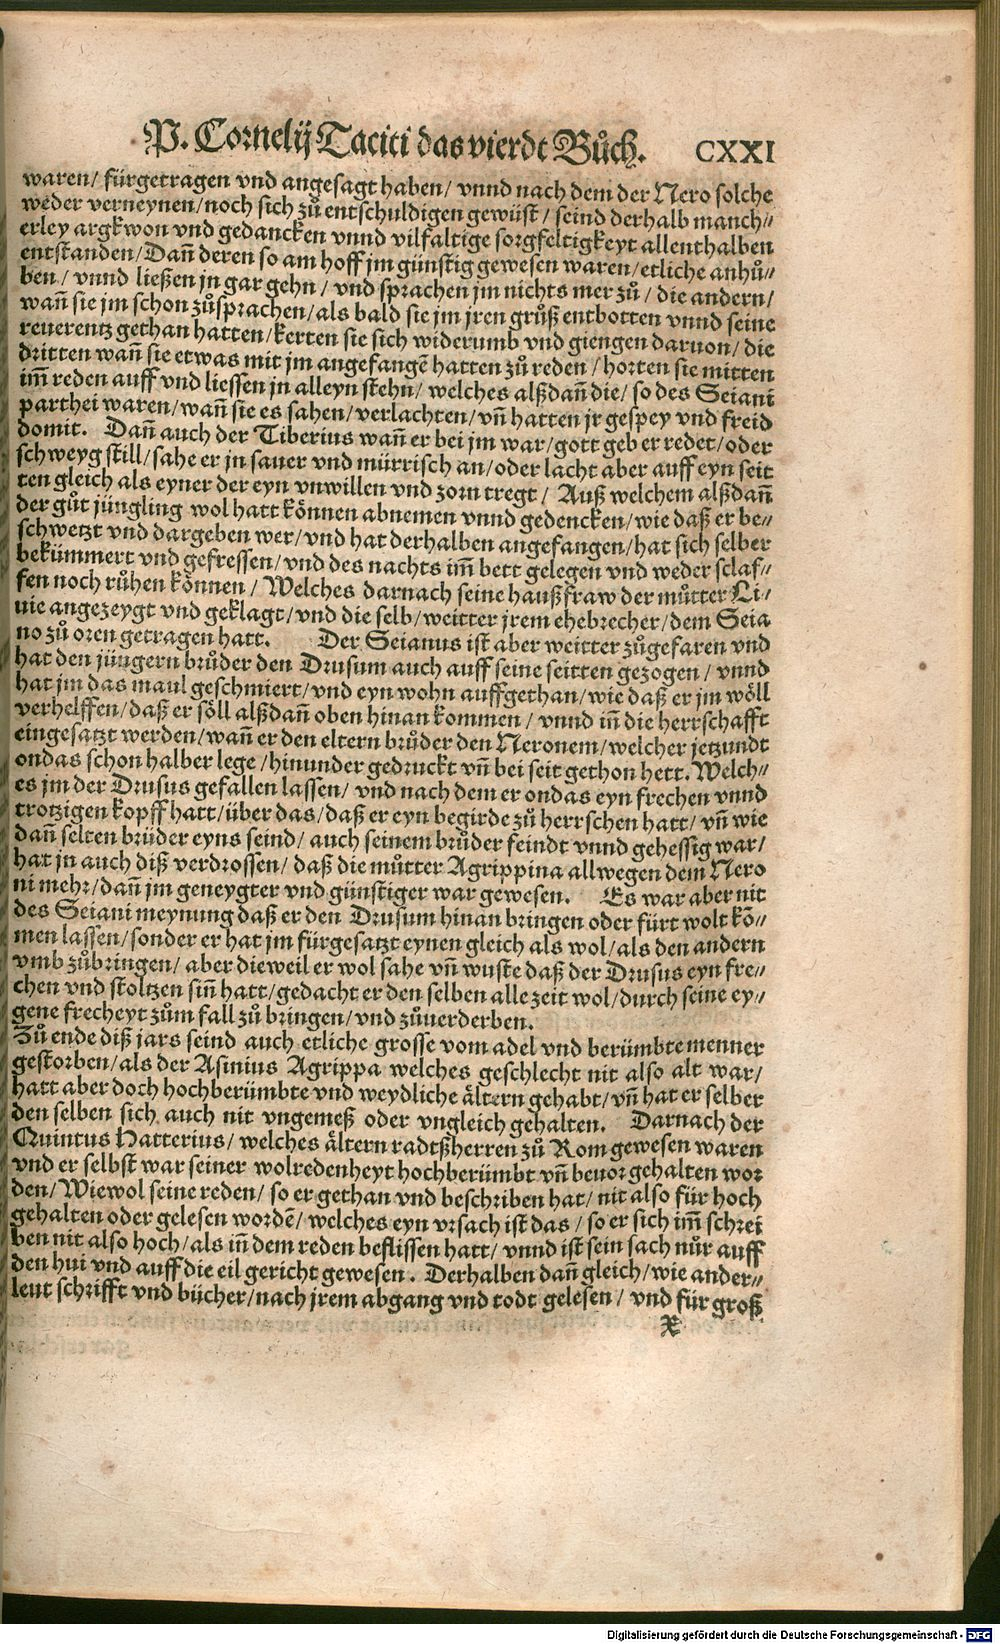 P. Cornelij Taciti das vierdt Bůch. CXXI
waren/ fürgetragen vnd angesagt haben/ vnnd nach dem der Nero solche
weder verneynen/ noch sich zů entschuldigen gewüst/ seind derhalb manch⸗
erley argkwon vnd gedancken vnnd vilfaltige sorgfeltigkeyt allenthalben
entstanden/ Dañ deren so am hoff jm günstig gewesen waren/ etliche anhů⸗
ben/ vnnd ließen jn gar gehn/ vnd sprachen jm nichts mer zů/ die andern/
wañ sie jm schon zůsprachen/ als bald sie jm jren grůß entbotten vnnd seine
reuerentz gethan hatten/ kerten sie sich widerumb vnd giengen daruon/ die
dritten wañ sie etwas mit jm angefangẽ hatten zů reden/ horten sie mitten
im̃ reden auff vnd liessen jn alleyn stehn/ welches alßdañ die/ so des Seiani
parthei waren/ wañ sie es sahen/ verlachten/ vñ hatten jr gespey vnd freid
domit. Dañ auch der Tiberius wañ er bei jm war/ gott geb er redet/ oder
schweyg still/ sahe er jn sauer vnd mürrisch an/ oder lacht aber auff eyn seit
ten gleich als eyner der eyn vnwillen vnd zorn tregt/ Auß welchem alßdañ
der gůt jüngling wol hatt können abnemen vnnd gedencken/ wie daß er be⸗
schwetzt vnd dargeben wer/ vnd hat derhalben angefangen/ hat sich selber
bekümmert vnd gefressen/ vnd des nachts im̃ bett gelegen vnd weder sclaf⸗
fen noch růhen können/ Welches darnach seine haußfraw der můtter Li⸗
uie angezeygt vnd geklagt/ vnd die selb/ weitter jrem ehebrecher/ dem Seia
no zů oren getragen hatt. Der Seianus ist aber weitter zůgefaren vnd
hat den jüngern brůder den Drusum auch auff seine seitten gezogen/ vnnd
hat jm das maul geschmiert/ vnd eyn wohn auffgethan/ wie daß er jm wöll
verhelffen/ daß er söll alßdañ oben hinan kommen/ vnnd iñ die herrschafft
eingesatzt werden/ wañ er den eltern brůder den Neronem/ welcher jetzundt
ondas schon halber lege/ hinunder gedruckt vñ bei seit gethon hett. Welch⸗
es jm der Drusus gefallen lassen/ vnd nach dem er ondas eyn frechen vnnd
trotzigen kopff hatt/ über das/ daß er eyn begirde zů herrschen hatt/ vñ wie
dañ selten brüder eyns seind/ auch seinem brůder feindt vnnd gehessig war/
hat jn auch diß verdrossen/ daß die můtter Agrippina allwegen dem Nero
ni mehr/ dañ jm geneygter vnd günstiger war gewesen. Es war aber nit
des Seiani meynung daß er den Drusum hinan bringen oder fürt wolt kõ⸗
men lassen/ sonder er hat jm fürgesatzt eynen gleich als wol/ als den andern
vmb zůbringen/ aber dieweil er wol sahe vñ wuste daß der Drusus eyn fre⸗
chen vnd stoltzen siñ hatt/ gedacht er den selben alle zeit wol/ durch seine ey⸗
gene frecheyt zům fall zů bringen/ vnd zůuerderben.
Zů ende diß jars seind auch etliche grosse vom adel vnd berümbte menner
gestorben/ als der Asinius Agrippa welches geschlecht nit also alt war/
hatt aber doch hochberümbte vnd weydliche ältern gehabt/ vñ hat er selber
den selben sich auch nit vngemeß oder vngleich gehalten. Darnach der
Quintus Hatterius/ welches ältern radtßherren zů Rom gewesen waren
vnd er selbst war seiner wolredenheyt hochberümbt vñ beuor gehalten wor
den/ Wiewol seine reden/ so er gethan vnd beschriben hat/ nit also für hoch
gehalten oder gelesen wordẽ/ welches eyn vrsach ist das/ so er sich im̃ schrei
ben nit also hoch/ als iñ dem reden beflissen hatt/ vnnd ist sein sach nůr auff
den hui vnd auff die eil gericht gewesen. Derhalben dañ gleich/ wie ander⸗
leut schrifft vnd bücher/ nach jrem abgang vnd todt gelesen/ vnd für groß
X
Digitalisierung gefördert durch die Deutsche Forschungsgemeinschaft - DFG